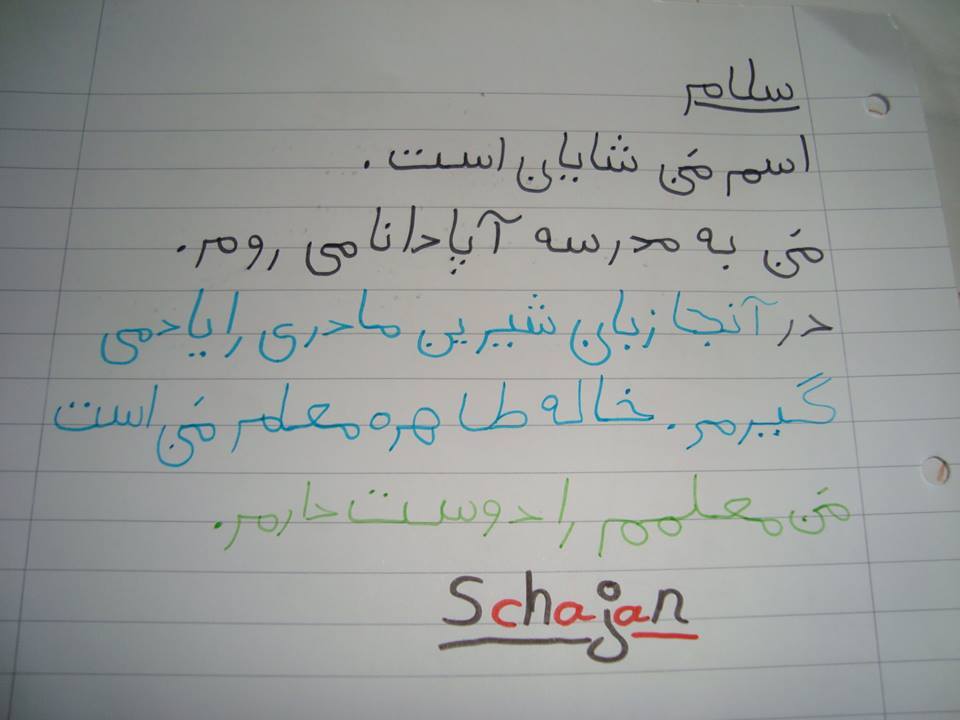 سلام
اسم من شایان است.
من به مدرسه آپادانا می روم.
در آنجا زبان شیرین مادری را یاد می
گیرم. خاله طاهره معلم من است
من معلمم را دوست دارم.
Schajan